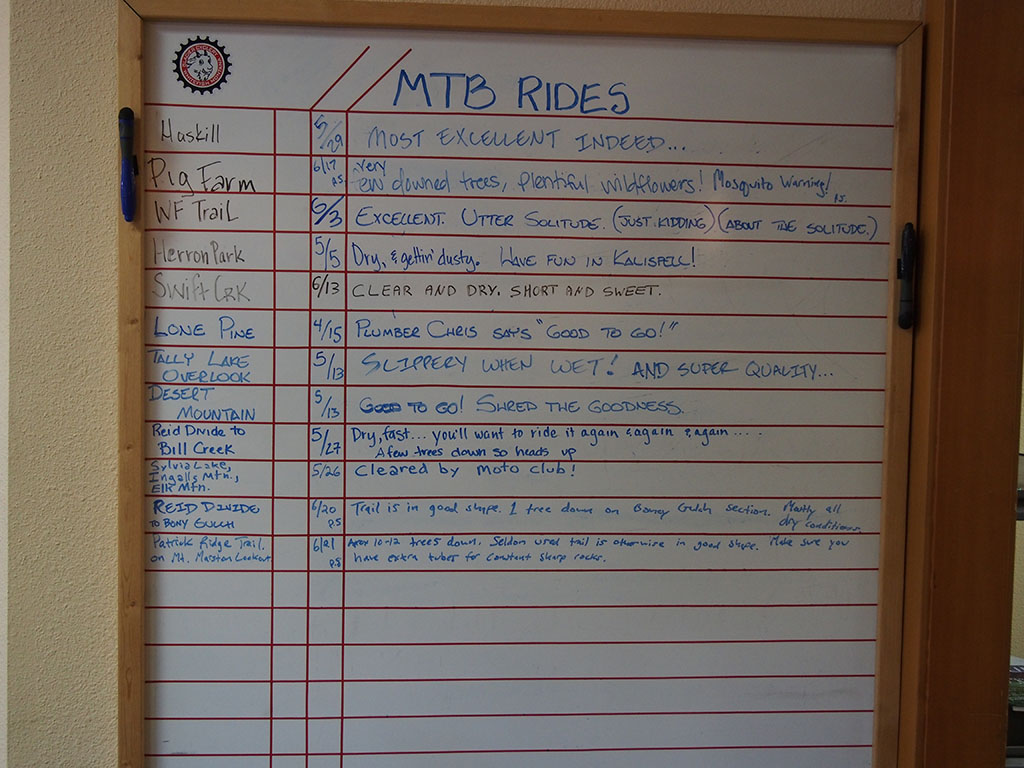 MTB RIDES
Haskill 5/29 MOST EXCELLENT INDEED...
Pig Farm 6/17 P.S. Very few downed trees, plentiful wildflowers! Mosquito Warning! P.S.
WF TRAIL 6/3 EXCELLENT. UTTER SOLITUDE. (JUST KIDDING) (ABOUT THE SOLITUDE.)
Herron Park 5/5 Dry, & gettin' dusty. HAVE FUN IN KALISPELL!
Swift Crk 6/13 CLEAR AND DRY. SHORT AND SWEET.
LONE PINE 4/15 PLUMBER CHRIS SAYS "GOOD TO GO!"
TALLY LAKE
OVERLOOK 5/13 SLIPPERY WHEN WET! AND SUPER QUALITY...
DESERT
MOUNTAIN 5/13 GOOD TO GO! SHRED THE GOODNESS.
Reid Divide to
Bill Creek 5/27 Dry, fast... you'll want to ride it again & again & again.....
A few trees down so heads up
Sylvia Lake,
Ingalls Mtn.,
Elk Mtn. 5/26 Cleared by moto club!
REID DIVIDE
TO BONY GULCH 6/20 P.S Trail is in good shape. 1 tree down on Boney Gulch section. Mostly all
dry conditions.
Patrick Ridge Trail.
on Mt. Marston Lookout 6/21 P.S 10-12 trees down. Seldon used trail is otherwise in good shape. Make sure you
have extra tubes for constant sharp rocks.